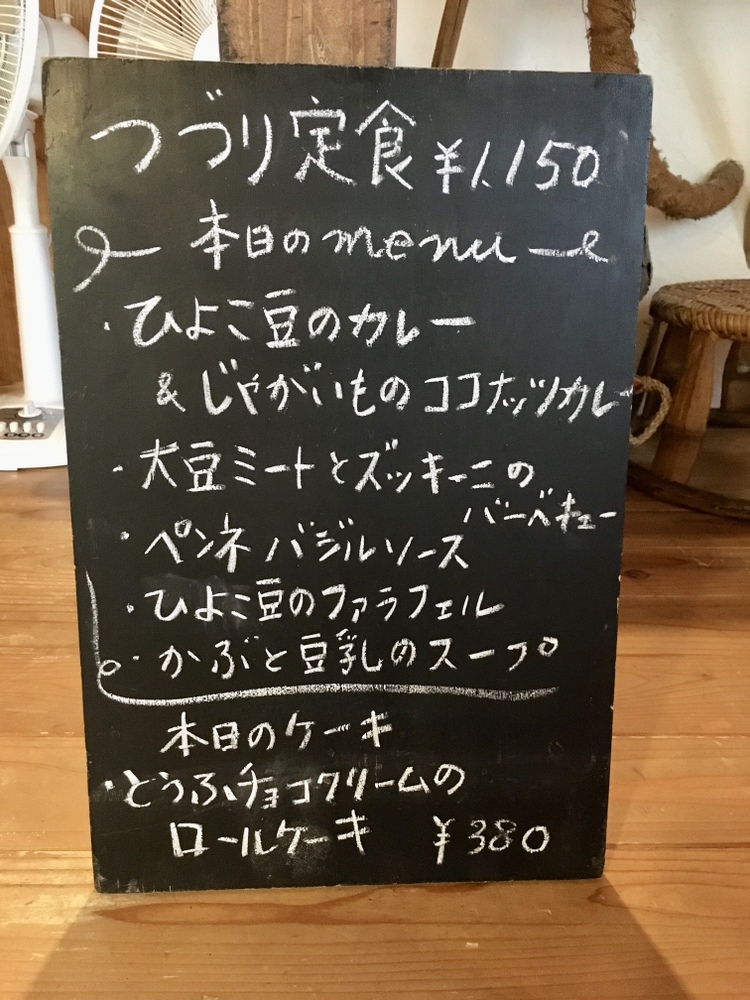 つづり定食 ¥1.150
本日のmenu
・ひよこ豆のカレー
& じゃがいものココナッツカレー
・大豆ミートとズッキーニの
バーベキュー
・ペンネ バジルソース
・ひよこ豆のファラフェル
・かぶと豆乳のスープ
本日のケーキ
・とうふチョコクリームの
ロールケーキ ¥380